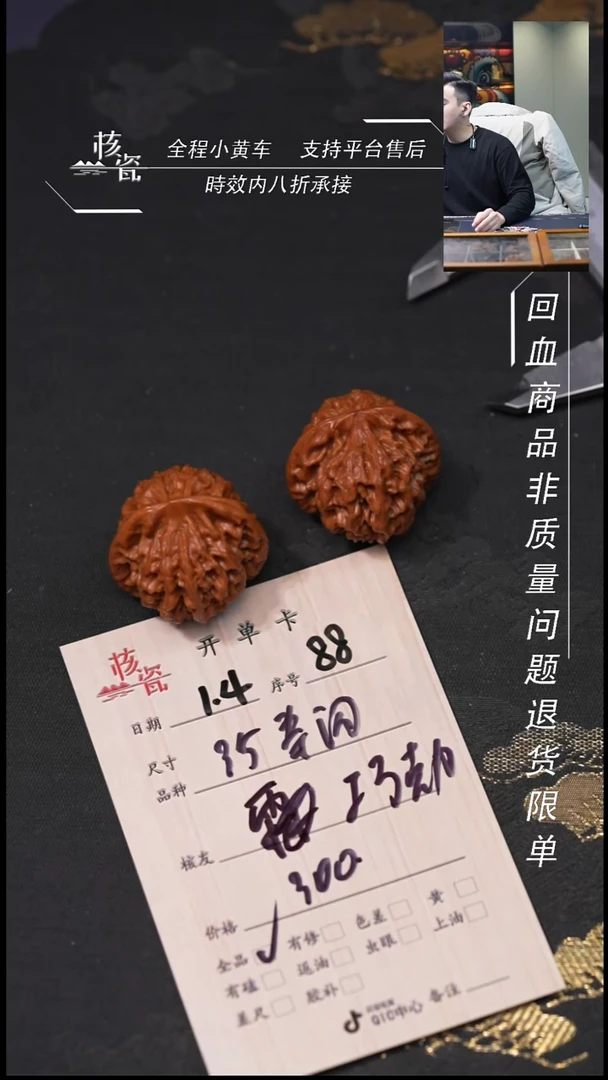 核瓷
全程小黄车 支持平台售后
時效内八折承接
回血商品非质量问题退货限单
核瓷
开单卡
日期 1.4 序号 88
尺寸 35
品种
核友
价格 300
全品 ✓ 有修 色差 黄
有磕 返油 虫眼 上油
差尺 胶补
QIC中心 备注